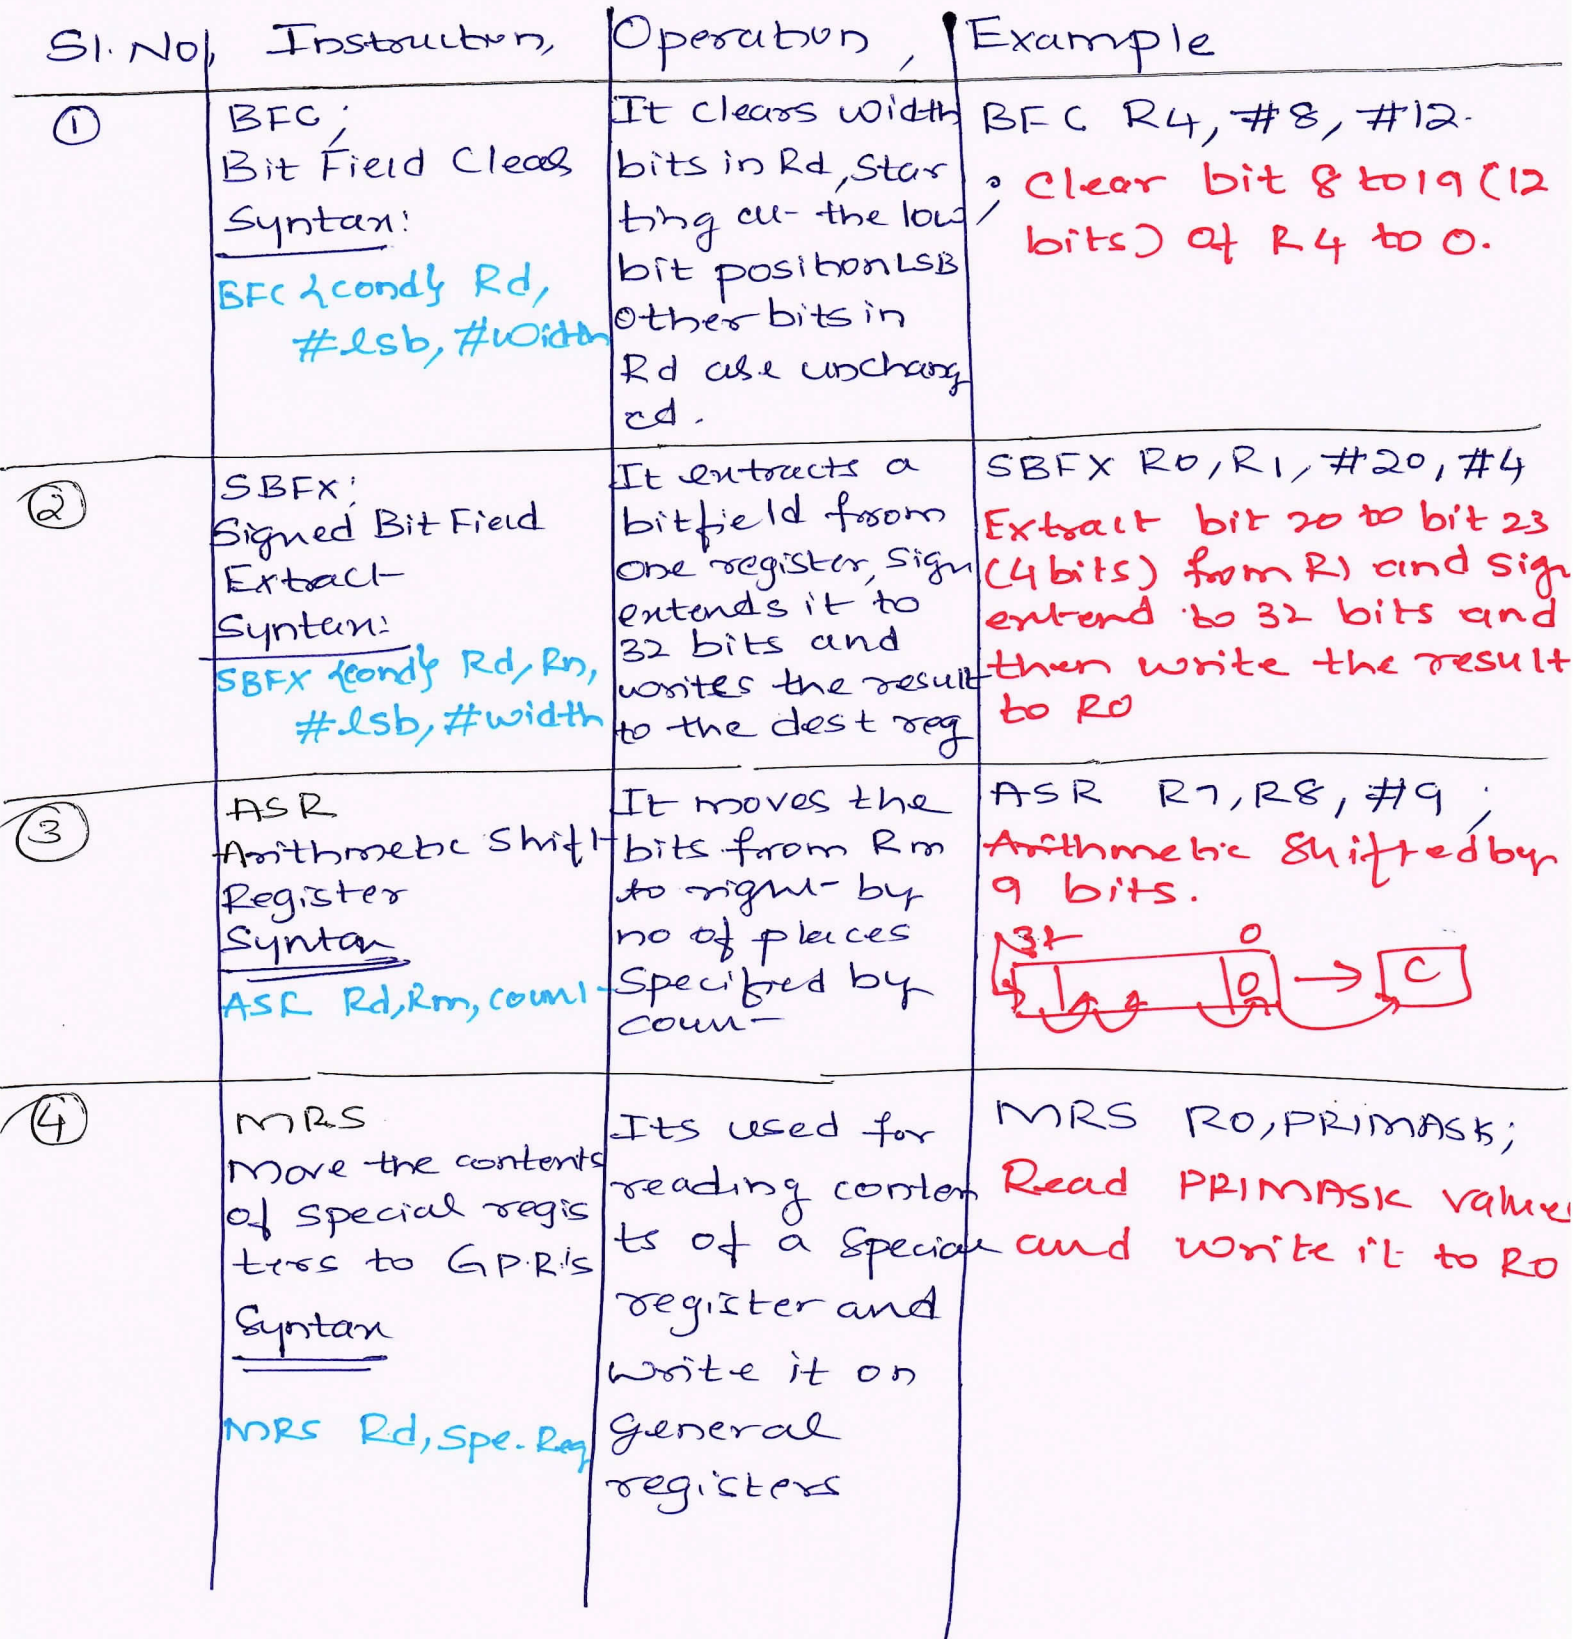 Sl. No, Instruction, Operation, Example
①
BFC;
Bit Field Clear
Syntax:
BFC {cond} Rd,
#lsb, #width
It clears width
bits in Rd, Star
ting at the low
bit position LSB
Other bits in
Rd are unchang
ed.
BFC R4, #8, #12.
; Clear bit 8 to 19 (12
bits) of R4 to 0.
②
SBFX:
Signed Bit Field
Extract
Syntax:
SBFX {cond} Rd, Rn,
#lsb, #width
It extracts a
bitfield from
one register, sign
extends it to
32 bits and
writes the result
to the dest reg
SBFX R0, R1, #20, #4
Extract bit 20 to bit 23
(4 bits) from R1 and Sign
extend to 32 bits and
then write the result
to R0
③
ASR
Arithmetic Shift
Register
Syntax
ASR Rd, Rm, count
It moves the
bits from Rm
to right by
no of places
Specified by
count
ASR R7, R8, #9 ;
Arithmetic Shifted by
9 bits.
31 0
0 C
④
MRS
Move the contents
of special regis
ters to G.P.R's
Syntax
MRS Rd, Spe. Reg
Its used for
reading conten
ts of a Special
register and
write it on
general
registers
MRS R0, PRIMASK;
Read PRIMASK value
and write it to R0